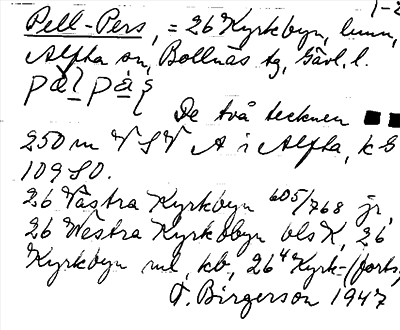 1-2
Pell-Pers, = 26 Kyrkbyn, hmn,
Alfta sn, Bollnäs tg, Gävl. l.
De två tecknen ■ ■
250 m VSV A i Alfta, k G
109 SO.
26 Västra Kyrkbyn 605/768 jr,
26 Westra Kyrkobyn bls K, 26
Kyrkbyn ml, kb, 26⁴ Kyrk-(forts.)
T. Birgerson 1947